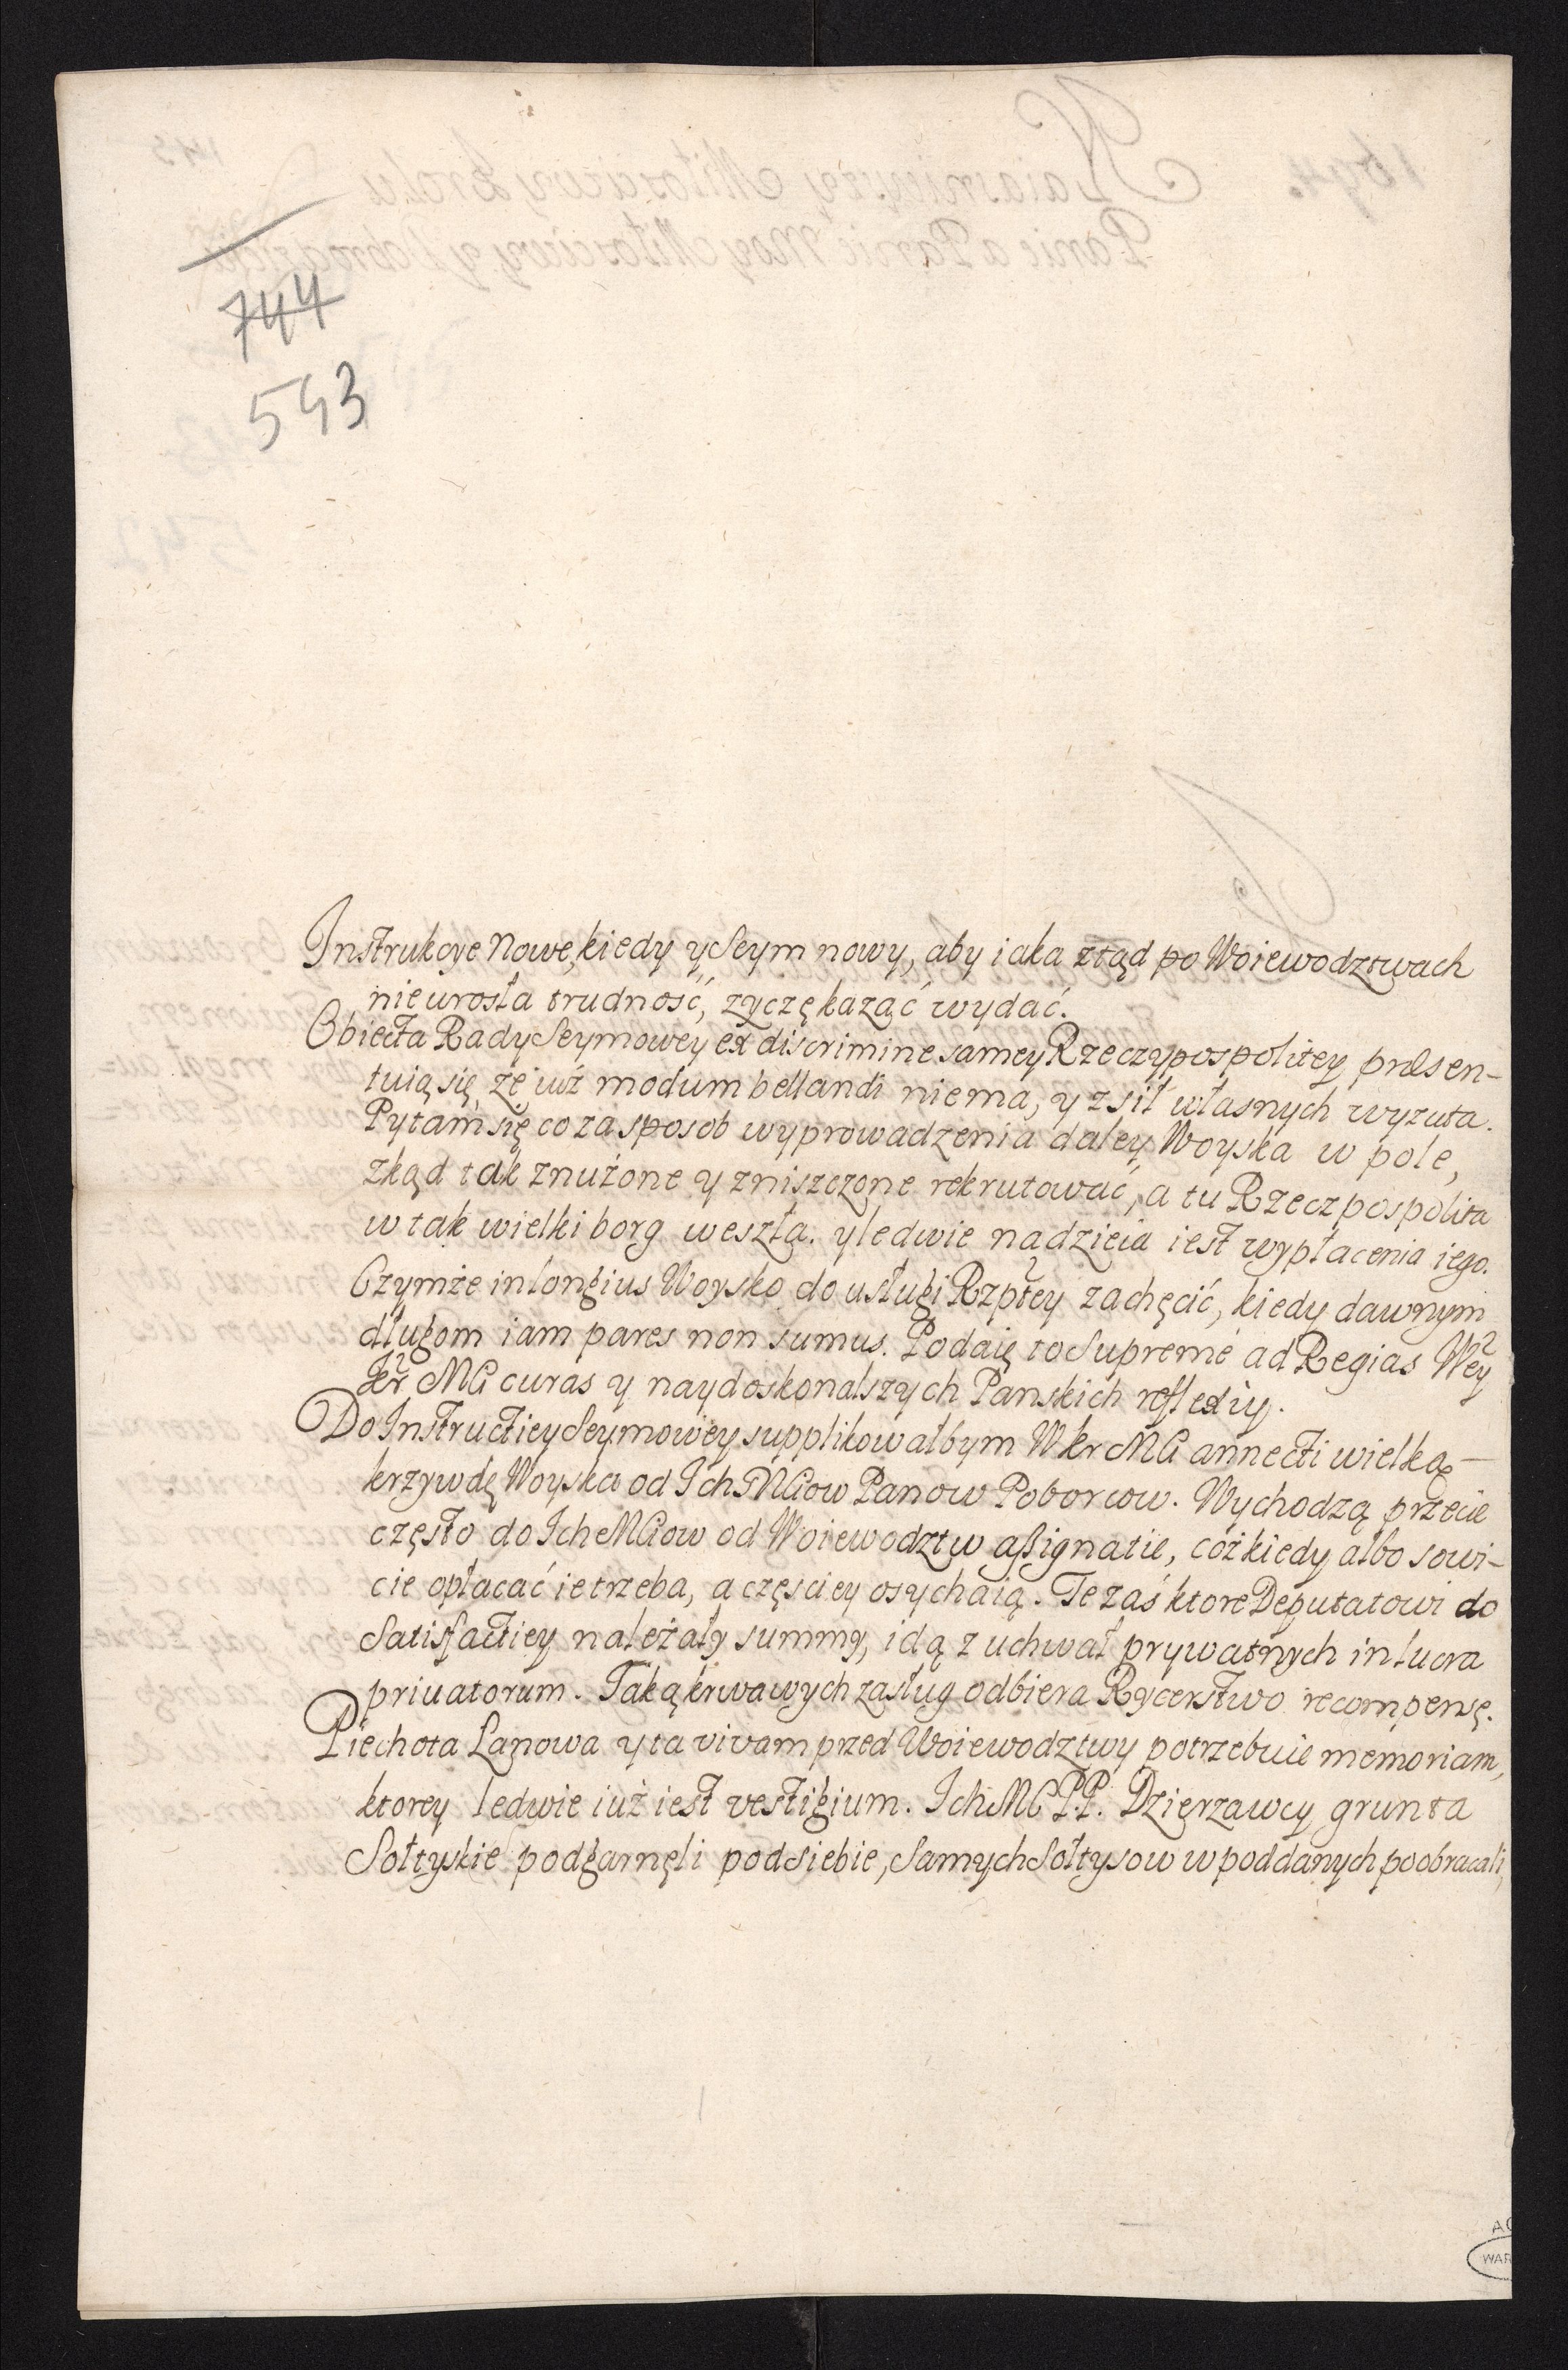 744
543
Instrukcye Nowe, kiedy y Seym nowy, aby iaka ztąd po Woiewodztwach
nie urosła trudność, zyczę kazać wydać.
Obiecta Rady Seymowey ex discrimine samey Rzeczypospolitey præsen-
tuią się, że iuż modum bellandi niema, y z sił własnych wyzuta.
Pytam się co za sposob wyprowadzenia daley Woyska w pole,
zkąd tak znużone y zniszczone rekrutować, a tu Rzeczpospolita
w tak wielki borg weszła. y ledwie nadzieia iest wypłacenia iego.
Czymże in longius Woysko do usługi Rzpłtey zachęcić, kiedy dawnym
długom iam pares non sumus. Podaię to Supreme ad Regias Wey
Kr MCi curas y naydoskonalszych Panskich reflexiy.
Do Instructiey Seymowey supplikowałbym W kr MCi annecti wielką
krzywdę Woyska od Ich MCiow Panow Poborcow. Wychodzą przecie
często do Ich MCiow od Woiewodztw assignatie, cóż kiedy albo sowi-
cie opłacać ie trzeba, a częsciey osychaią. Te zaś ktore Deputatowi do
Satisfactiey należały summy, idą z uchwał prywatnych in lucra
priuatorum. Taką krwawych zasług odbiera Rycerstwo recompensę.
Piechota Łanowa y ta vivam przed Woiewodztwy potrzebuie memoriam,
ktorey ledwie iuż iest vestigium. Ich MC PP. Dzierzawcy grunta
Sołtyskie podgarnęli pod siebie, Samych Sołtysow w poddanych poobracali,
WAR